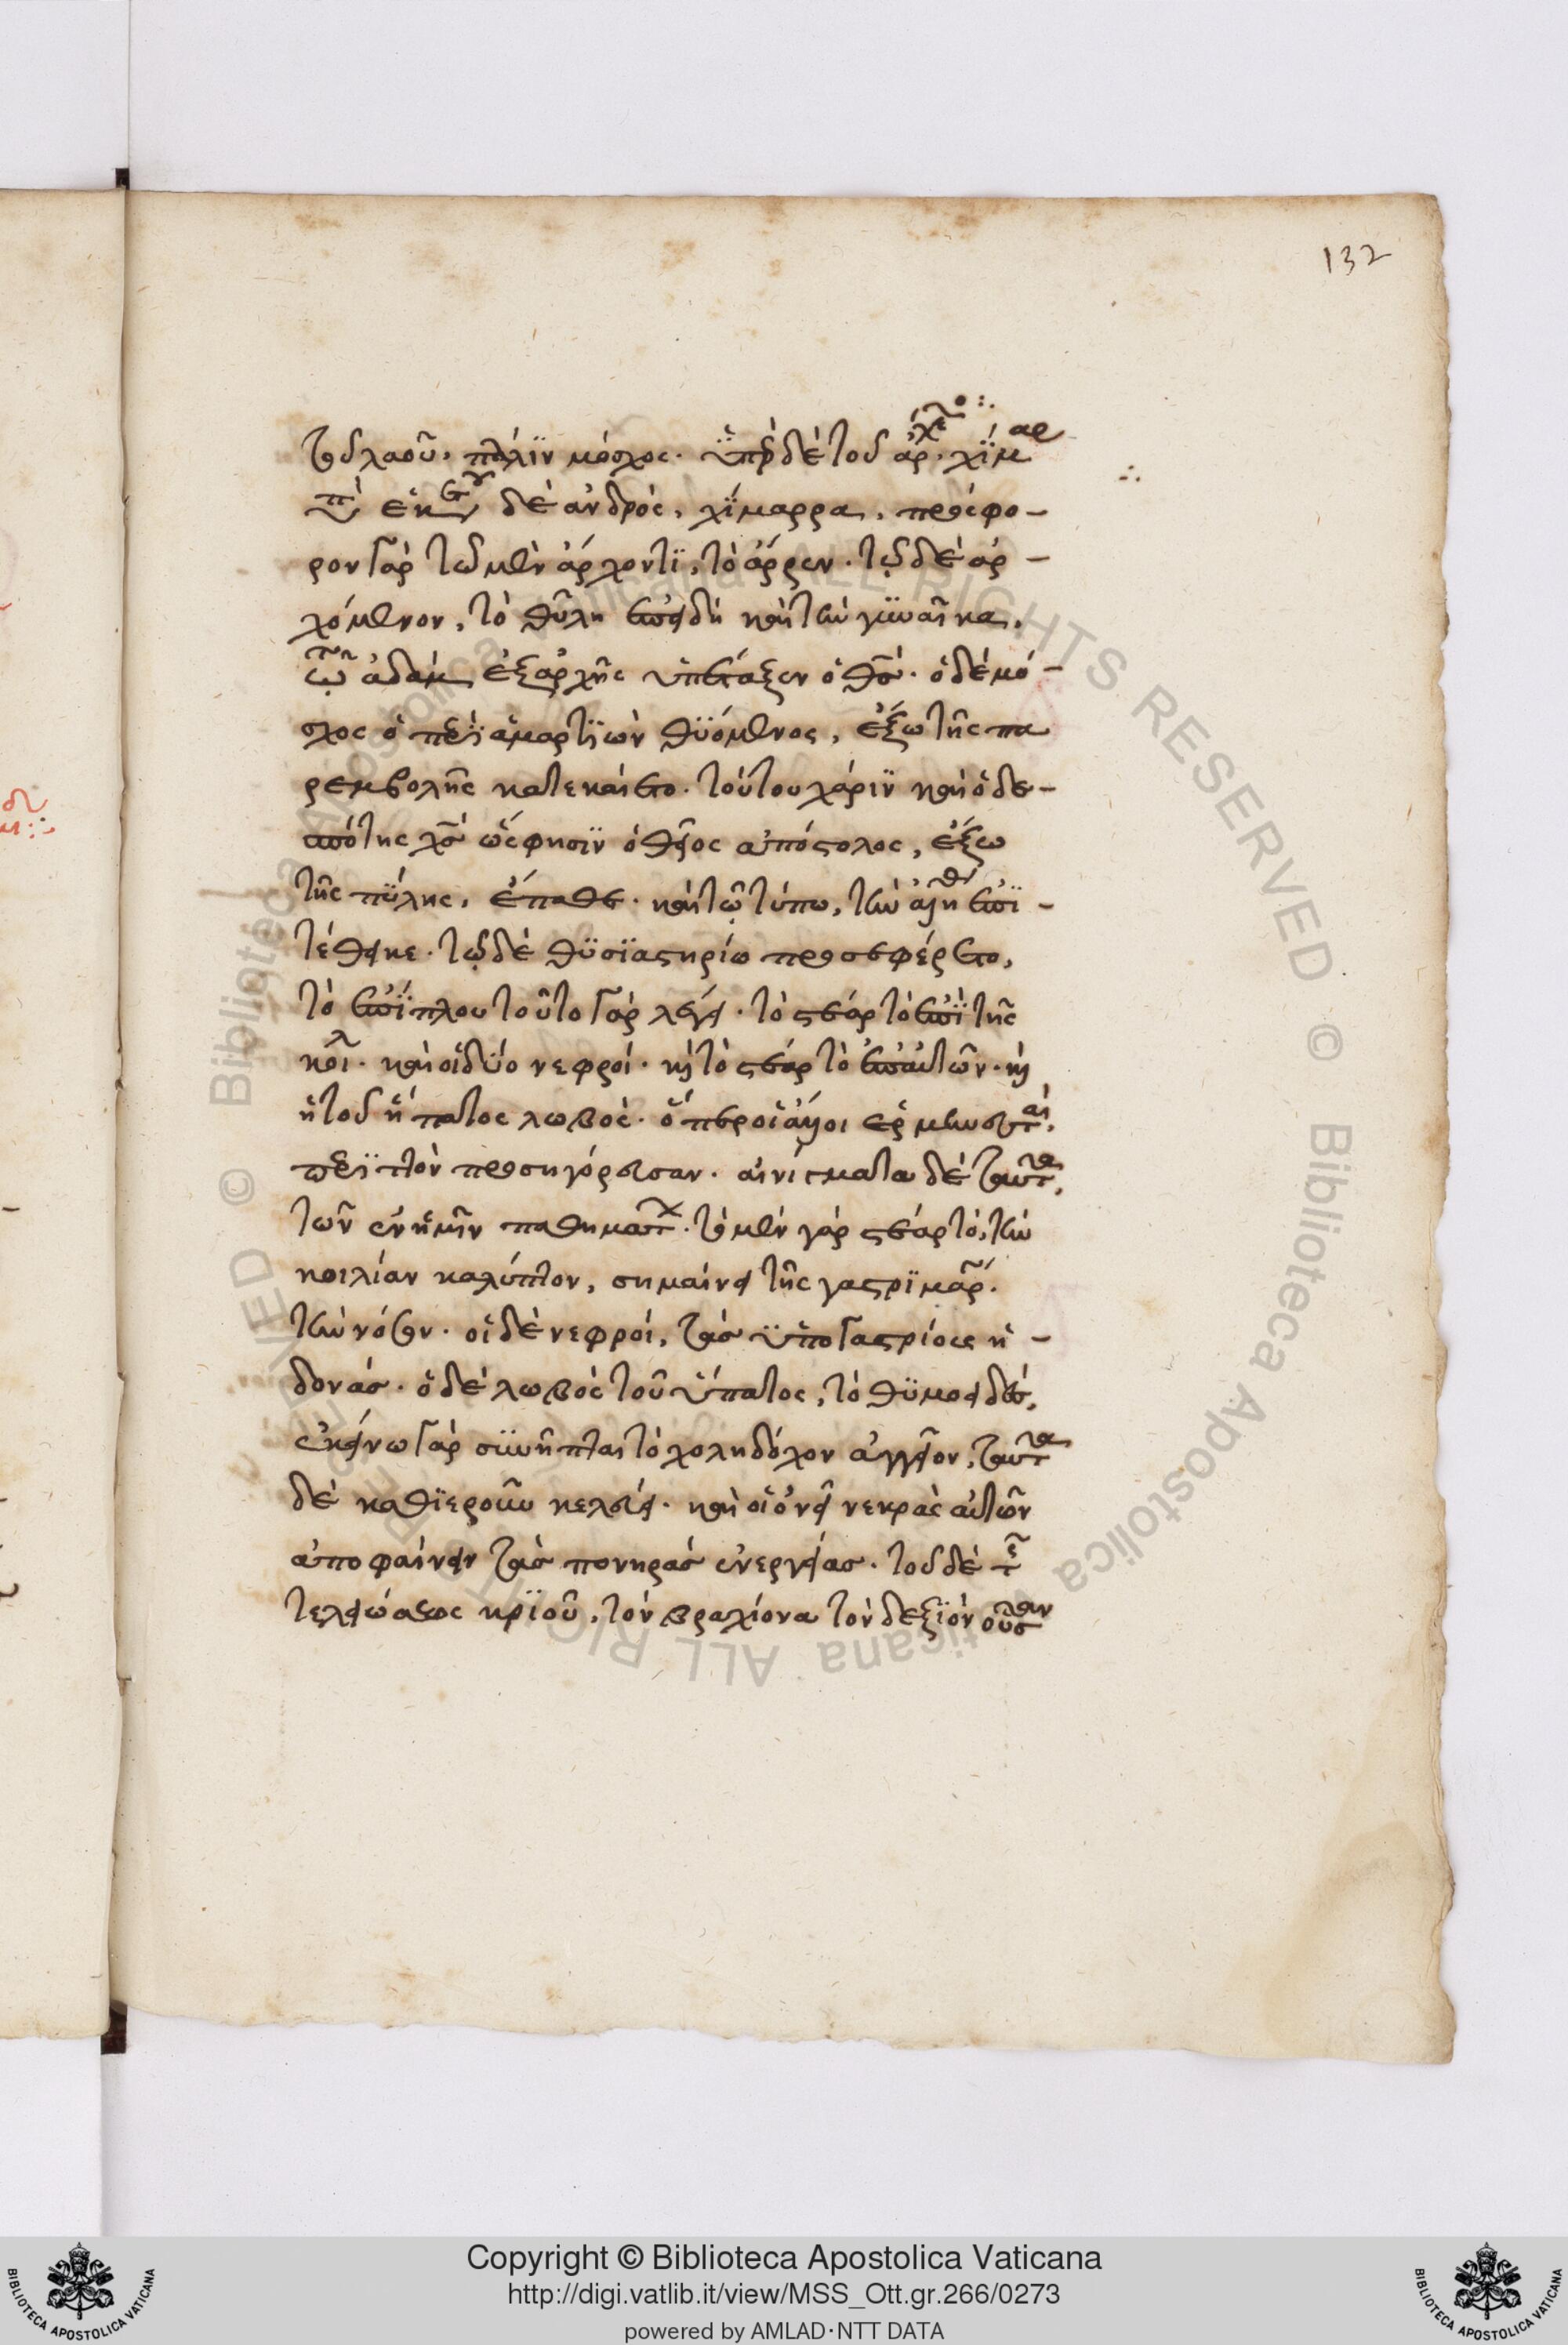 132
τοῦ λαοῦ, πάλιν μόσχος. ὑπὲρ δὲ τοῦ ἄρχοντος, χίμαρος
ὑπὲρ ἑκάστου δὲ ἀνδρὸς, χίμαρρα, πρόσφο-
ρον γὰρ τῶ μὲν ἄρχοντι, τὸ ἄρρεν. τῷ δὲ ἀρ-
χόμενον, τὸ θῦλη ἐπειδὴ καὶ τὴν γυναῖκα,
τῶ ἀδὰμ ἐξαρχῆς ὑπέταξεν ὁ θσ. ὁ δὲ μό-
σχος ὁ περὶ ἁμαρτιῶν θυόμενος, ἔξω τῆς πα
ρεμβολῆς κατεκαίετο. τούτου χάριν καὶ ὁ δε-
σπότης χσ ὥς φησιν ὁ θεῖος ἀπόστολος, ἔξω
τῆς πύλης, ἔπαθε. καὶ τῷ τύπω, τὴν ἀλήθειαν ἐπι-
τέθεικε. τῷ δὲ θυσιαστηρίω προσεφέρετο,
τὸ ἐπίπλουτοῦτο γὰρ λέγει. τὸ στέαρ τὸ ἐπὶ τῆς
κοιλ. καὶ οἱ δύο νεφροί. καὶ τὸ στέαρ τὸ ἐπ' αὐτῶν. καὶ
ὁ τοῦ ἥπατος λωβός. ὅπερ οἱ ἄλλοι ἑρμηνευταὶ,
περιττὸν προσηγόρευσαν. αἰνίγματα δὲ ταῦτα,
τῶν ἐν ἡμῖν παθημάτων. τὸ μὲν γὰρ στέαρ τὸ, τὴν
κοιλίαν καλύπτον, σημαίνει τῆς γαστριμαρ.
τὴν νόσον. οἱ δὲ νεφροί, τὰσ ὑπογαστρίους ἡ-
δονάσ. ὁ δὲ λωβὸς τοῦ ὕπατος, τὸ θυμοειδέσ,
ἐκείνω γὰρ συνῆπται τὸ χοληδόχον ἀγγεῖον, ταῦτα
δὲ καθιεροῦν κελεύει. καὶ οἱονεῖ νεκρὰς αὐτῶν
ἀποφαίνειν τὰσ πονηρὰσ ἐνεργείασ. τοῦ δὲ τῆς
τελειώσεως κριοῦ, τὸν βραχίονα τὸν δεξιὸν
Copyright © Biblioteca Apostolica Vaticana
http://digi.vatlib.it/view/MSS_Ott.gr.266/0273
powered by AMLAD·NTT DATA
© Biblioteca Apostolica Vaticana ALL RIGHTS RESERVED